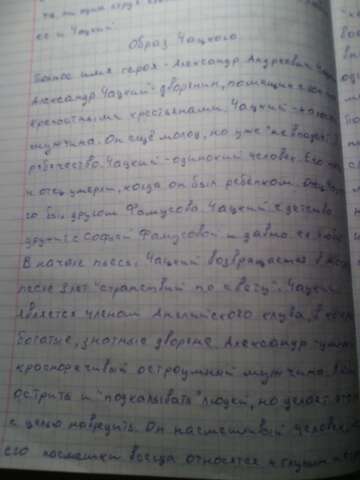 ее и Чацкий
Образ Чацкого.
Полное имя героя - Александр Андреевич
Александр Чацкий - дворянин, помещик с
крепостными крестьянами. Чацкий -
мужчина. Он ещё молод, но уже "не впадет в
ребячество. Чацкий - одинокий человек. Его
и отец умерли, когда он был ребёнком.
го был другом Фамусова. Чацкий с детства
дружит с Софьей Фамусовой и давно ее
В начале пьесы Чацкий возвращается в
после 3 лет "странствий по свету". Чацкий
является членом Английского клуба, в
богатые, знатные дворяне. Александр -
красноречивый остроумный мужчина.
острить и "подкалывать" людей, но делает
с целью навредить. Он насмешливый человек,
его насмешки всегда относятся к глупым